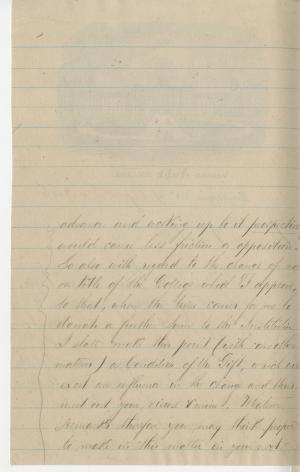 advance and working up to it prospectively
would cause less friction & opposition.
So also with regard to the change of na
or title of the College which I approve,
so that, when the time comes for me to
donate a further sum to the Institution
I shall make this point (with one other
matter) a Condition of the Gift, & will
exert an influence in the change and thus
meet out your views & mine. Whatever
remarks therefor you may think proper
to make in this matter in your next